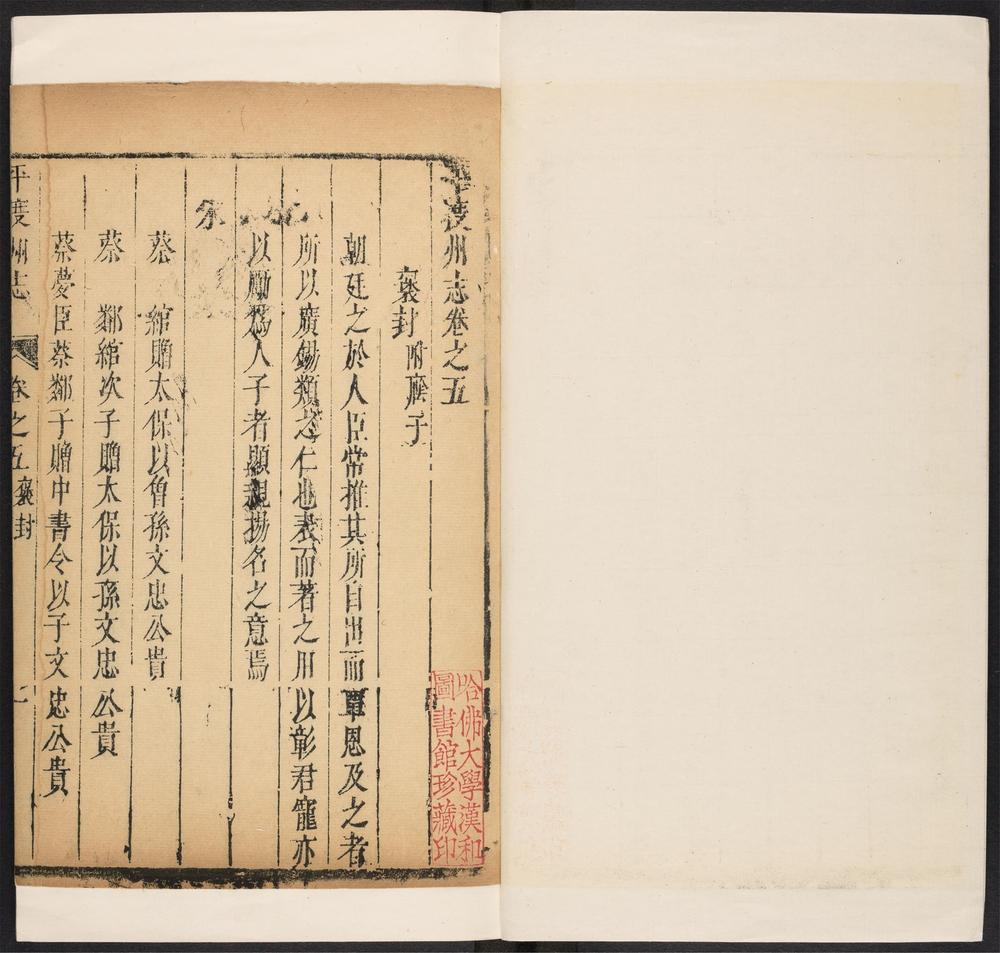 平度州志卷之五
褒封附廕子
朝廷之於人臣常推其所自出而覃恩及之者
所以廣錫類之仁也表而著之用以彰君寵亦
以勵爲人子者顯親揚名之意焉
蔡　綰贈太保以曾孫文忠公貴
蔡　鄰綰次子贈太保以孫文忠公貴
蔡夢臣蔡鄰子贈中書令以子文忠公貴
平度州志
卷之五褒封
一
哈佛大學漢和
圖書館珍藏印